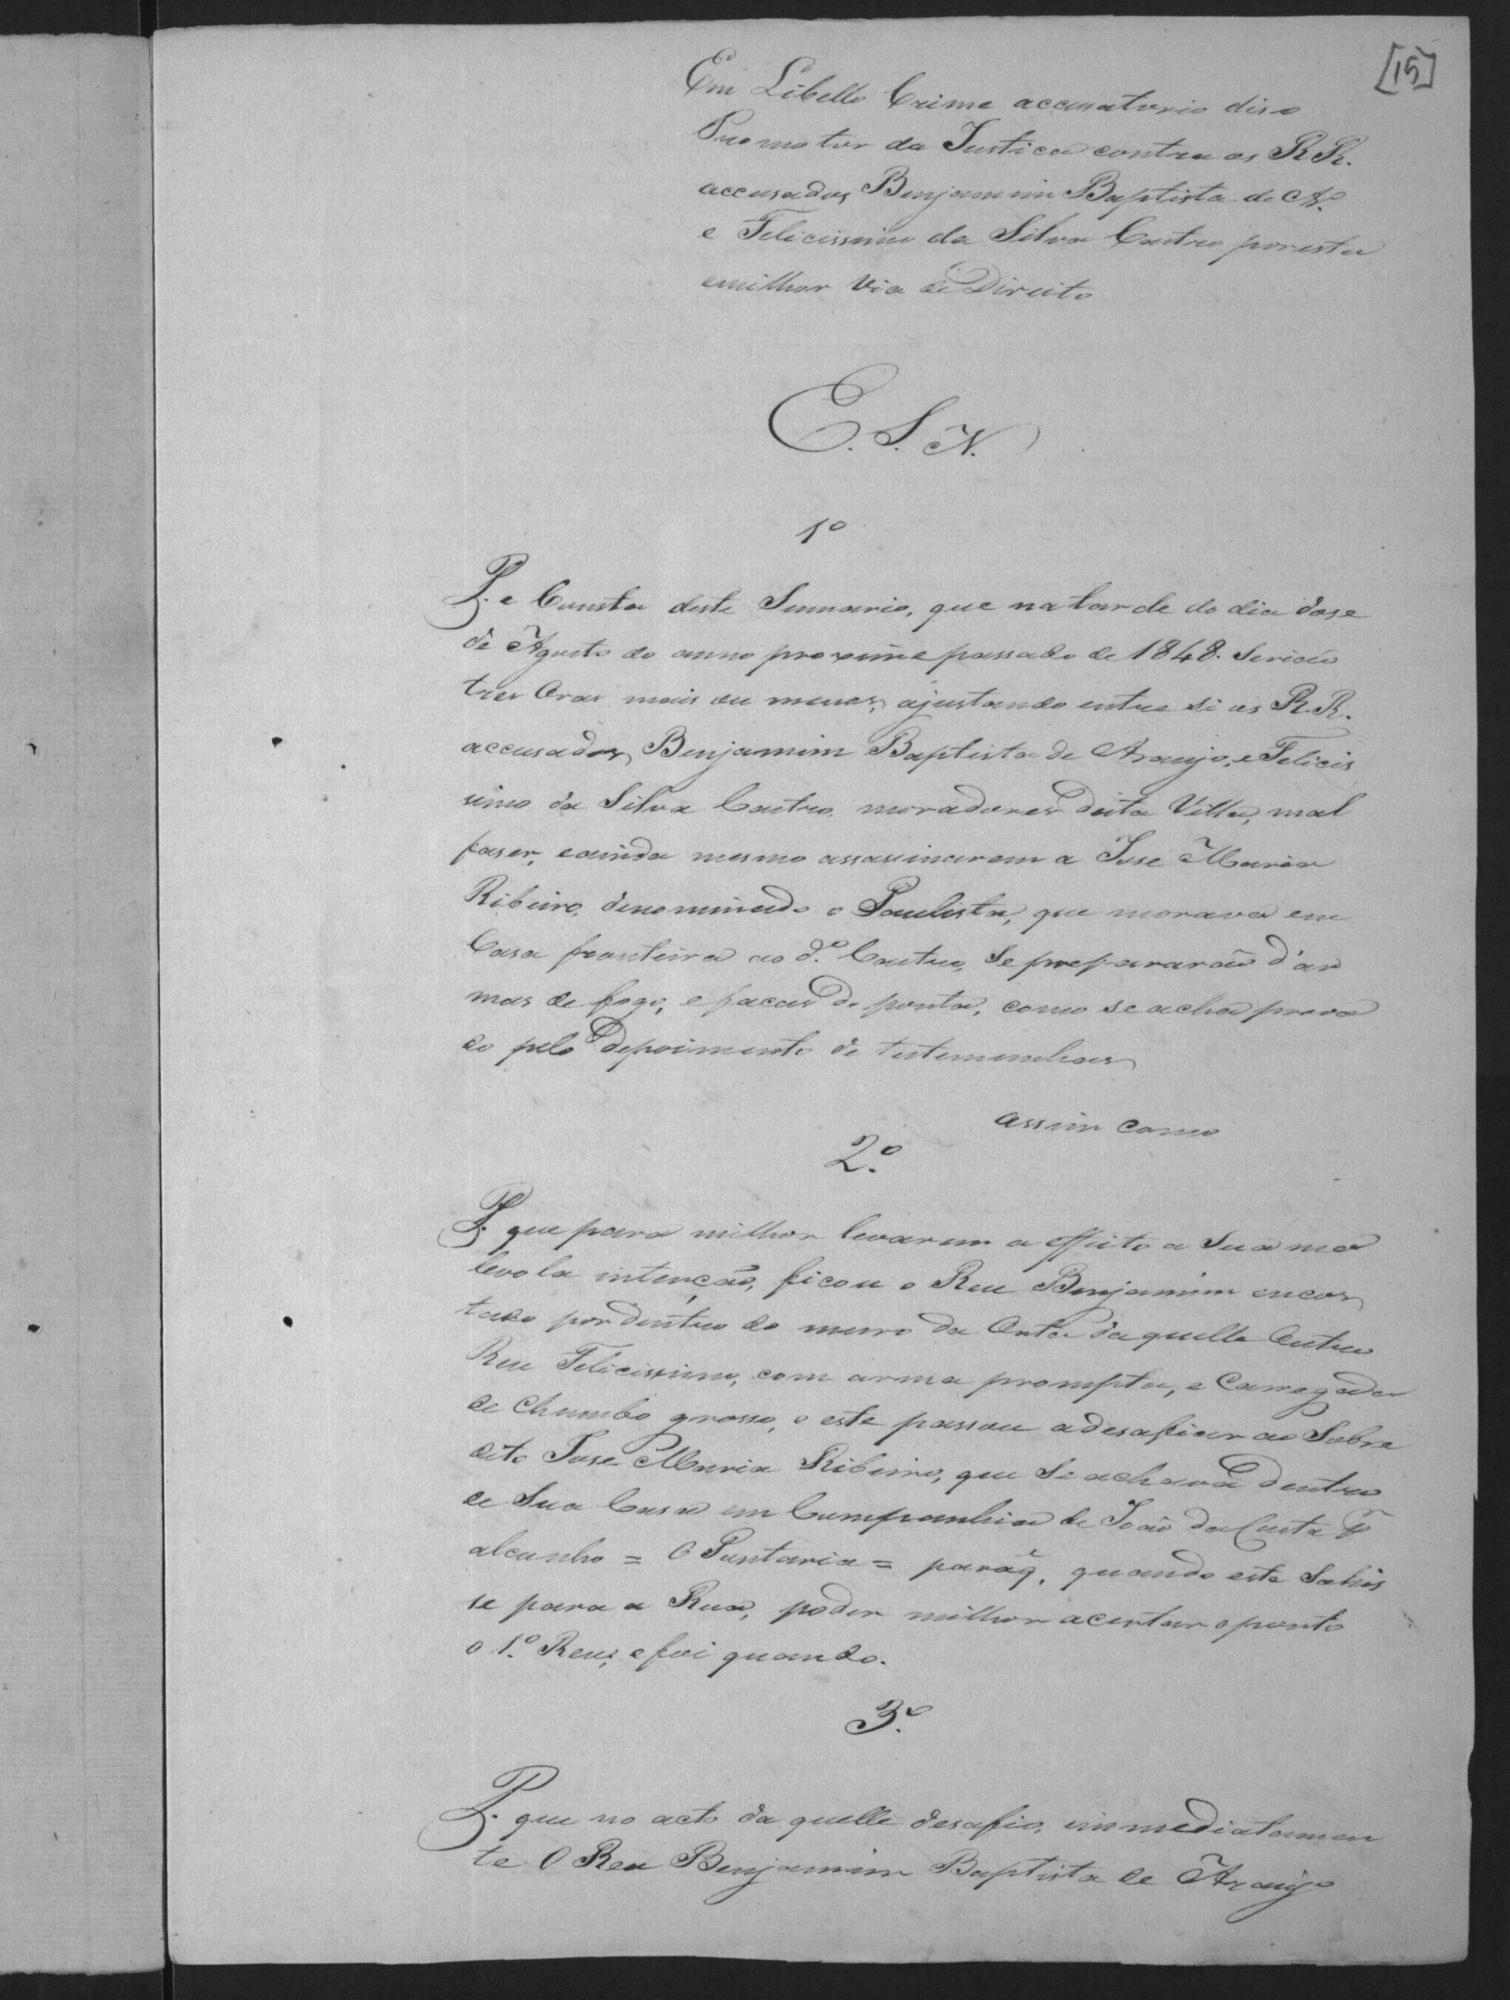 [15]
Em Libello Crime accusatorio diso
Promotor da Justica contra os RR.
accusados Benjamim Baptista de Ar.º
e Felicissimo da Silva Castro por esta
emilhor via de Direito
E. S. N.
1º
P. e Consta deste Sumario, que na tarde do dia dose
de Agosto do anno proximo passado de 1848. Serião
tres Oras mais ou menos, ajustando entre si os R.R.
accusados, Benjamim Baptista de Araujo, e Felicis
simo da Silva Castro, moradores desta Villa, mal
faser, eainda mesmo assasinarem a Juse Maria
Ribeiro, denominado o Paulista, que morava em
Casa fronteira ao d.º Castro, Se prepararão d'ar
mas de fogo, e facas de ponta, como se acha prova
do pelo depoimento de testemunhas,
assim como
2º.
P. que para milhor levarem a effeito a Sua ma
levola intenção, ficou o Reu Benjamim encos
tado por dentro do muro da Orta daquelle Outro
Reu Felicissimo, com arma prompta, e Carregada
de Chumbo grosso, e este passou adesafiar ao Sobre
dito Juse Maria Ribeiro, que Se achava dentro
de Sua Casa em Companhia de João da Costa P
alcunho = O Puntaria = para q, quando este Sahis
se para a Rua, poder milhor acertar o ponto
o 1.º Reu, e foi quando.
3º.
P. que no acto da quelle desafio, immediatamen
te O Reu Benjamim Baptista de Araujo